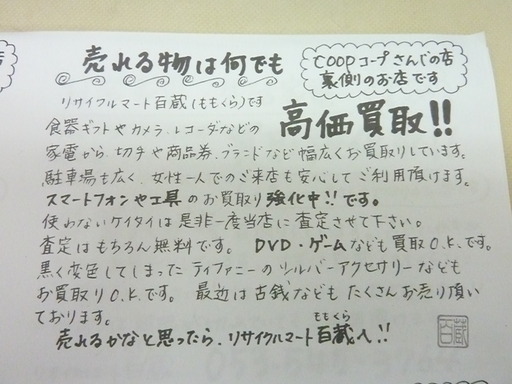 売れる物は何でも
COOPコープさんじの店
裏側のお店です
リサイクルマート百蔵(ももくら)です
高価買取!!
食器ギフトやカメラ、レコーダなどの
家電から、切手や商品券、ブランドなど幅広くお買取りしています。
駐車場も広く、女性一人でのご来店も安心してご利用頂けます。
スマートフォンや工具のお買取り強化中!!です。
使わないケイタイは是非一度当店に査定させて下さい。
査定はもちろん無料です。 DVD・ゲームなども買取O.K.です。
黒く変色してしまったティファニーのシルバーアクセサリーなども
お買取りO.K.です。 最近は古銭などもたくさんお売り頂い
ております。
売れるかなと思ったら、リサイクルマート百蔵へ!!
ももくら
百蔵